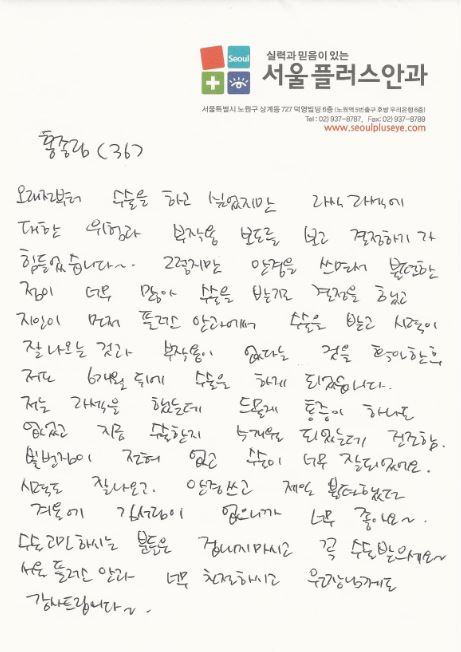 Seoul
실력과 믿음이 있는
서울플러스안과
서울특별시 노원구 상계동 727 덕영빌딩 6층 (노원역 5번출구 호방 우리은행 6층)
Tel : 02) 937-8787, Fax: 02) 937-8789
www.seoulpluseye.com
(36)
오래전부터 수술을 하고 싶었지만 라식 라섹에
대한 위험과 부작용 보도를 보고 결정하기가
힘들었습니다~. 그렇지만 안경을 쓰면서 불편한
점이 너무 많아 수술을 받기로 결정을 했고
지인이 먼저 플러스 안과에서 수술을 받고 시력이
잘 나오는 것과 부작용이 없다는 것을 확인한 후
저도 6개월 뒤에 수술을 하게 되었습니다.
저는 라섹을 했는데 드물게 통증이 하나도
없었고 지금 수술한지 4개월 되었는데 건조함.
빛번짐이 전혀 없고 수술이 너무 잘되었어요.
시력도 잘나오고. 안경쓰고 제일 불편했던
겨울에 김서림이 없으니까 너무 좋아요~.
수술고민하시는 분들은 겁내지마시고 꼭 수술받으세요~
서울 플러스 안과 너무 친절하시고 원장님께도
감사드립니다~.